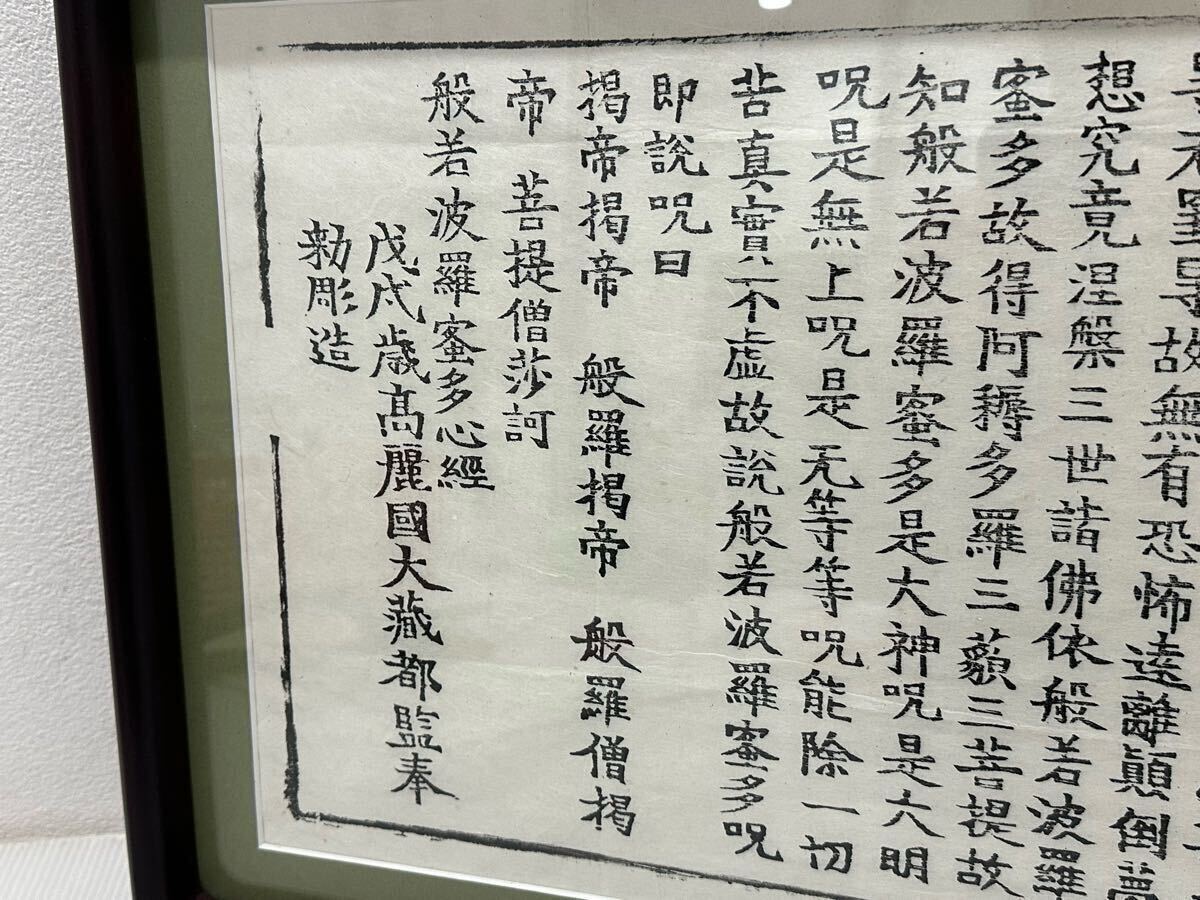 罣礙罣导故無有恐怖遠離顛倒夢
想究竟涅槃三世諸佛依般若波羅
蜜多故得阿耨多羅三藐三菩提故
知般若波羅蜜多是大神咒是大明
咒是無上咒是无等等咒能除一切
苦真實不虛故說般若波羅蜜多咒
即說咒曰
揭帝揭帝 般羅揭帝 般羅僧揭
帝 菩提僧莎訶
般若波羅蜜多心經
戊戌歲高麗國大藏都監奉
勅彫造